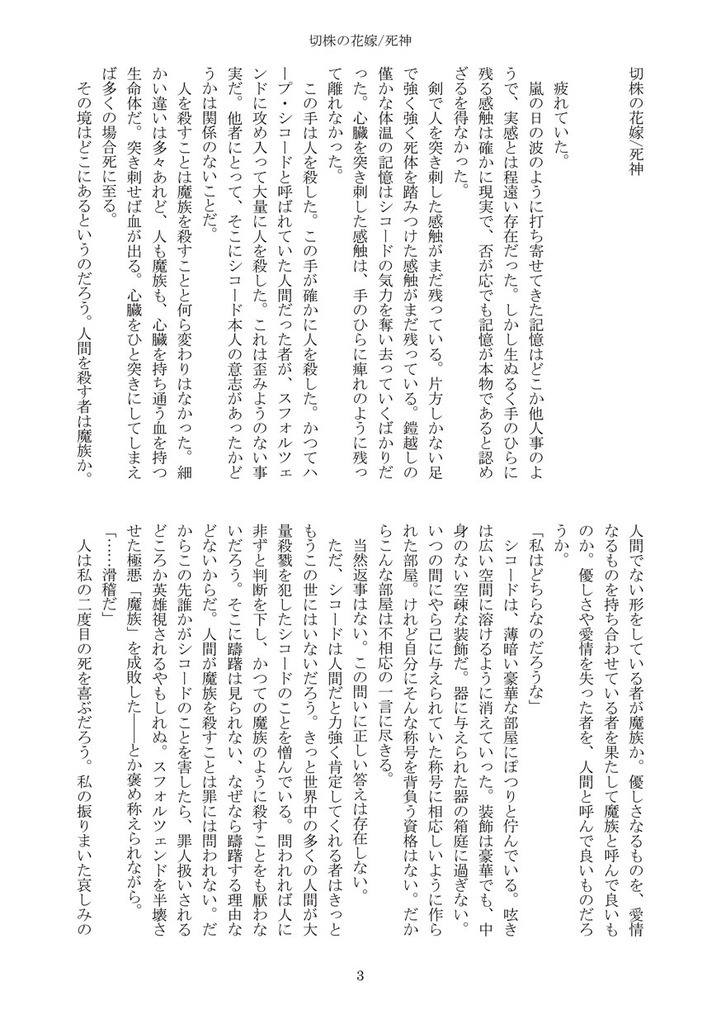 切株の花嫁/死神
切株の花嫁/死神
疲れていた。
嵐の日の波のように打ち寄せてきた記憶はどこか他人事のよ
うで、実感とは程遠い存在だった。しかし生ぬるく手のひらに
残る感触は確かに現実で、否が応でも記憶が本物であると認め
ざるを得なかった。
剣で人を突き刺した感触がまだ残っている。片方しかない足
で強く強く死体を踏みつけた感触がまだ残っている。鎧越しの
僅かな体温の記憶はシコードの気力を奪い去っていくばかりだ
った。心臓を突き刺した感触は、手のひらに痺れのように残っ
て離れなかった。
この手は人を殺した。この手が確かに人を殺した。かつてハ
ープ・シコードと呼ばれていた人間だった者が、スフォルツェ
ンドに攻め入って大量に人を殺した。これは歪みようのない事
実だ。他者にとって、そこにシコード本人の意志があったかど
うかは関係のないことだ。
人を殺すことは魔族を殺すことと何ら変わりはなかった。細
かい違いは多々あれど、人も魔族も、心臓を持ち通う血を持つ
生命体だ。突き刺せば血が出る。心臓をひと突きにしてしまえ
ば多くの場合死に至る。
その境はどこにあるというのだろう。人間を殺す者は魔族か。
人間でない形をしている者が魔族か。優しさなるものを、愛情
なるものを持ち合わせている者を果たして魔族と呼んで良いも
のか。優しさや愛情を失った者を、人間と呼んで良いものだろ
うか。
「私はどちらなのだろうな」
シコードは、薄暗い豪華な部屋にぽつりと佇んでいる。呟き
は広い空間に溶けるように消えていった。装飾は豪華でも、中
身のない空疎な装飾だ。器に与えられた器の箱庭に過ぎない。
いつの間にやら己に与えられていた称号に相応しいように作ら
れた部屋。けれど自分にそんな称号を背負う資格はない。だか
らこんな部屋は不相応の一言に尽きる。
当然返事はない。この問いに正しい答えは存在しない。
ただ、シコードは人間だと力強く肯定してくれる者はきっと
もうこの世にはいないだろう。きっと世界中の多くの人間が大
量殺戮を犯したシコードのことを憎んでいる。問われれば人に
非ずと判断を下し、かつての魔族のように殺すことをも厭わな
いだろう。そこに躊躇は見られない、なぜなら躊躇する理由な
どないからだ。人間が魔族を殺すことは罪には問われない。だ
からこの先誰かがシコードのことを害したら、罪人扱いされる
どころか英雄視されるやもしれぬ。スフォルツェンドを半壊さ
せた極悪「魔族」を成敗した――とか褒め称えられながら。
「……滑稽だ」
人は私の二度目の死を喜ぶだろう。私の振りまいた哀しみの
3